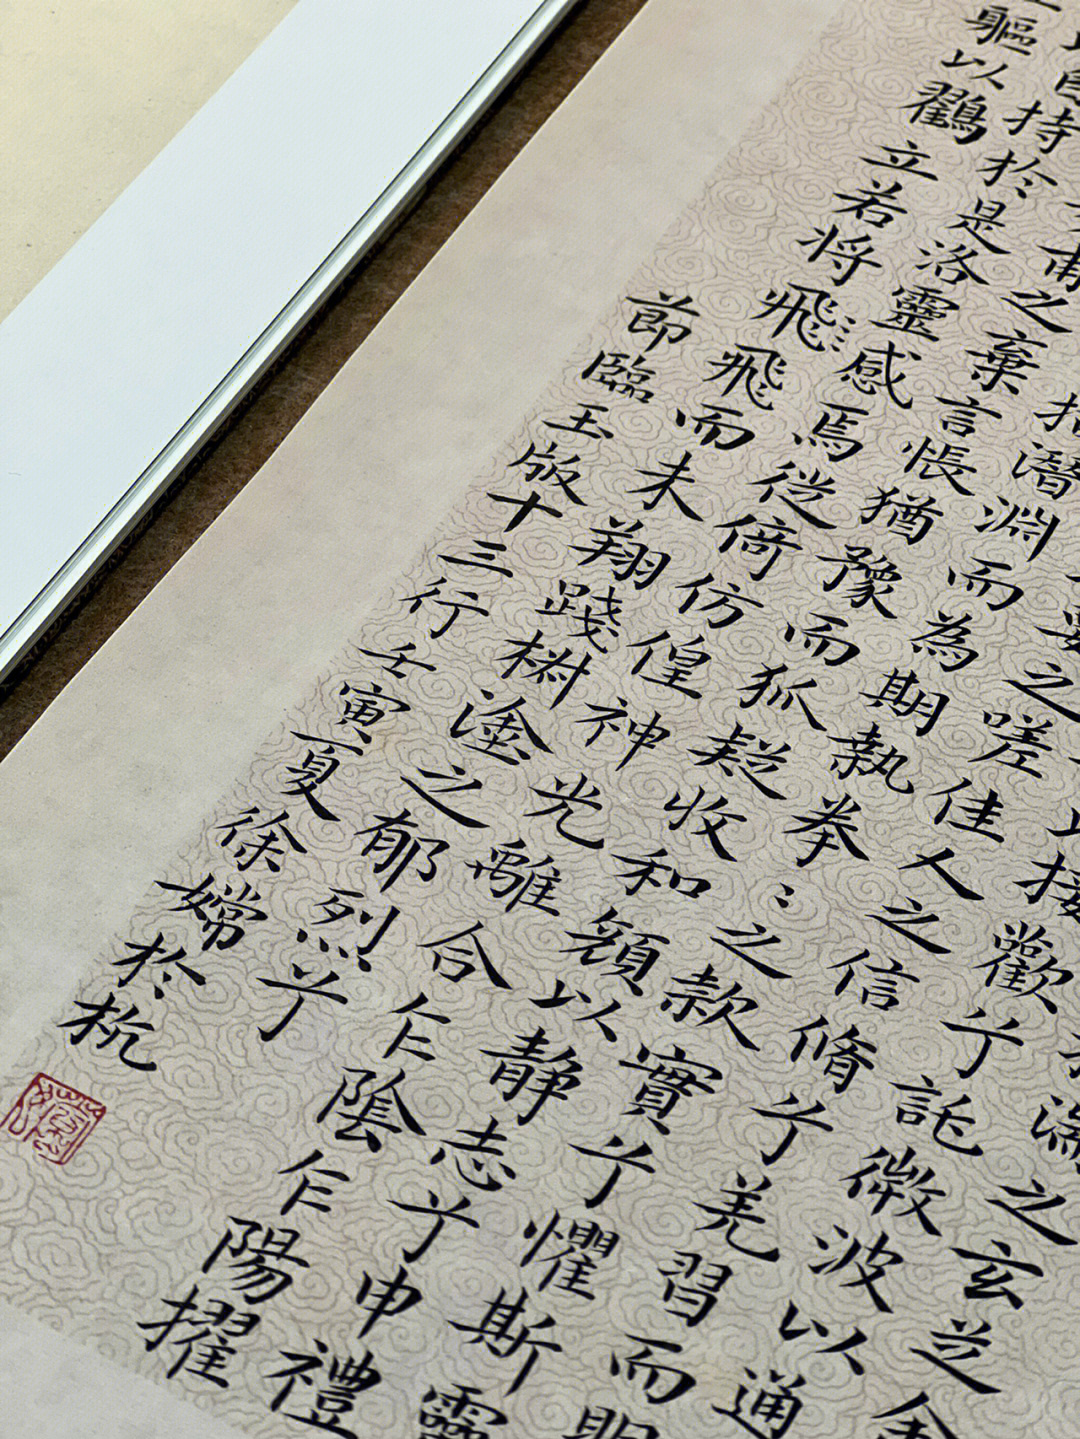 湍之玄芝余
接歡兮託微波以通
之嗟佳人之信脩兮羌習而明
潛淵而為期執拳〻之款實兮懼斯靈
甫之棄言悵猶豫而狐疑收和顏以靜志兮申禮
自持於是洛靈感焉徙倚仿徨神光離合乍陰乍陽擢
軀以鶴立若將飛飛而未翔踐椒塗之郁烈兮
節臨玉版十三行壬寅夏徐嫦於杭